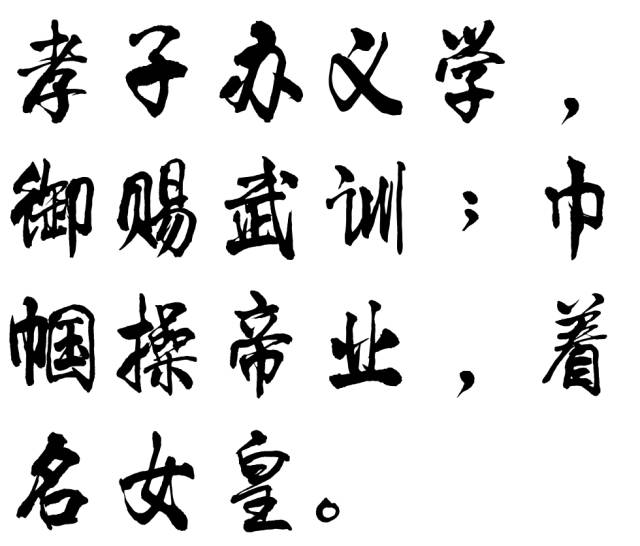 孝子办义学，
御赐武训；巾
帼操帝业，着
名女皇。